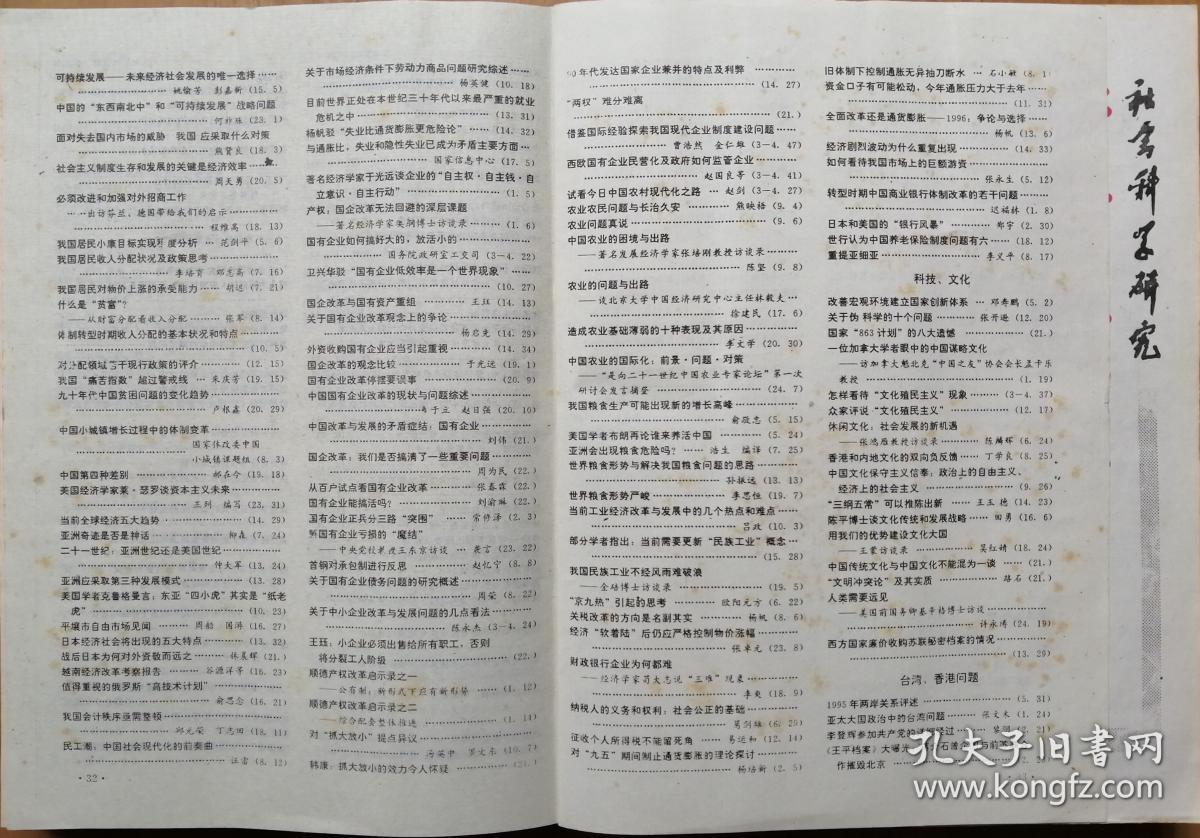 可持续发展——未来经济社会发展的唯一选择……
……姚愉芳 彭嘉新 (15. 5)
中国的“东西南北中”和“可持续发展”战略问题
……何祚庥 (23. 1)
面对失去国内市场的威胁 我国应采取什么对策
……熊贤良 (18. 3)
社会主义制度生存和发展的关键是经济效率……
……周天勇 (20. 5)
必须改进和加强对外招商工作
……出访芬兰、德国带给我们的启示……
……程维高 (18. 13)
我国居民小康目标实现程度分析 …… 范剑平 (5. 6)
我国居民收入分配状况及政策思考……
……李培育 邓志高 (7. 16)
我国居民对物价上涨的承受能力…… 胡迟 (7. 21)
什么是“贫富”?
——从财富分配看收入分配…… 张军 (8. 14)
体制转型时期收入分配的基本状况和特点……
……(10. 5)
对分配领域若干现行政策的评介……(12. 15)
我国“痛苦指数”超过警戒线 …… 朱庆芳 (19. 15)
九十年代中国贫困问题的变化趋势……
……卢根鑫 (20. 29)
中国小城镇增长过程中的体制变革……
……国家体改委中国
小城镇课题组 (8. 3)
中国第四种差别 …… 郝在今 (19. 18)
美国经济学家莱·瑟罗谈资本主义未来……
……王列 编写 (23. 31)
当前全球经济五大趋势……(14. 29)
亚洲奇迹是否是神话…… 柳森 (7. 24)
二十一世纪:亚洲世纪还是美国世纪……
……仲大军 (13. 24)
亚洲应采取第三种发展模式……(13. 28)
美国学者克鲁格曼言:东亚“四小虎”其实是“纸老
虎”……(10. 23)
平壤市自由市场见闻 …… 周韬 国涛 (16. 27)
日本经济社会将出现的五大特点……(13. 32)
战后日本为何对外资敬而远之…… 林晨辉 (21. )
越南经济改革考察报告 …… 谷源洋等 (16. 23)
值得重视的俄罗斯“高技术计划”……
……俞思念 (16. 21)
我国会计秩序亟需整顿……
……邱元荣 丁志田 (18. 11)
民工潮:中国社会现代化的前奏曲……
……汪雷 (8. 12)
· 32 ·
关于市场经济条件下劳动力商品问题研究综述……
……杨英健 (10. 18)
目前世界正处在本世纪三十年代以来最严重的就业
危机之中……(13. 31)
杨帆驳“失业比通货膨胀更危险论”……(14. 32)
与通胀比,失业和隐性失业已成为矛盾主要方面……
……国家信息中心 (17. 5)
著名经济学家于光远谈企业的“自主权·自主钱·自
立意识·自主行动”……(1. 5)
产权:国企改革无法回避的深层课题
——著名经济学家吴炯博士访谈录……(1. 6)
国有企业如何搞好大的,放活小的……
……国务院政研室工交司 (3—4. 22)
卫兴华驳“国有企业低效率是一个世界现象”……
……(10. 27)
国企改革与国有资产重组 …… 王珏 (14. 13)
关于国有企业改革观念上的争论……
……杨启先 (14. 29)
外资收购国有企业应当引起重视……(14. 34)
国企改革的观念比较…… 于光远 (19. 1)
国有企业改革停摆要误事……(20. 9)
中国国有企业改革的现状与问题综述……
……于立 赵日强 (20. 10)
中国改革与发展的矛盾症结:国有企业……
……刘伟 (21. )
国企改革:我们是否搞清了一些重要问题……
……周为民 (22. )
从百户试点看国有企业改革…… 张春霖 (22. )
国有企业能搞活吗?…… 刘渝琳 (22. )
国有企业正兵分三路“突围” …… 常修泽 (2. 3)
国有企业亏损的“魔结”
——中央党校教授王东京访谈 …… 裴言 (23. 22)
首钢对承包制进行反思…… 赵忆宁 (8. 8)
关于国有企业债务问题的研究概述……
……周荣 (8. 22)
关于中小企业改革与发展问题的几点看法……
……陈永杰 (3—4. 24)
王珏:小企业必须出售给所有职工,否则
将分裂工人阶级……(22. )
顺德产权改革启示录之一
——公有制:新形式下应有新形势……(1. 12)
顺德产权改革启示录之二
——综合配套整体推进……(1. 14)
对“抓大放小”提点异议……
……汤英中 罗文东 (10. 7)
韩康:抓大放小的效力令人怀疑……(21. )
90年代发达国家企业兼并的特点及利弊……
……(14. 27)
“两权”难分难离
……(21. )
借鉴国际经验探索我国现代企业制度建设问题……
……曹浩然 金仁雄 (3—4. 47)
西欧国有企业民营化及政府如何监管企业……
……赵国良等 (3—4. 41)
试看今日中国农村现代化之路 …… 赵剑 (3—4. 27)
农业农民问题与长治久安 …… 熊映梧 (9. 4)
农业问题真说……(9. 6)
中国农业的困境与出路
——著名发展经济学家张培刚教授访谈录……
……陈坚 (9. 8)
农业的问题与出路
——谈北京大学中国经济研究中心主任林毅夫……
……徐建民 (17. 6)
造成农业基础薄弱的十种表现及其原因……
……李文学 (20. 30)
中国农业的国际化:前景·问题·对策
——“走向二十一世纪中国农业专家论坛”第一次
研讨会发言摘登……(24. 7)
我国粮食生产可能出现新的增长高峰……
……俞敬忠 (5. 15)
美国学者布朗再论谁来养活中国……(5. 24)
亚洲会出现粮食危险吗?…… 浩生 编译 (7. 25)
世界粮食形势与解决我国粮食问题的思路……
……孙振远 (13. 13)
世界粮食形势严峻…… 李思恒 (19. 7)
当前工业经济改革与发展中的几个热点和难点……
……吕政 (10. 3)
部分学者指出:当前需要更新“民族工业”概念…
……(15. 28)
我国民族工业不经风雨难破浪
——金碚博士访谈录……(19. 5)
“京九热”引起的思考 …… 欧阳元方 (6. 22)
关税改革的方向是名副其实…… 杨帆 (8. 6)
经济“软着陆”后仍应严格控制物价涨幅……
……张卓元 (23. 8)
财政银行企业为何都难
——经济学家苟大志说“三难”现象……
……李爽 (18. 9)
纳税人的义务和权利:社会公正的基础……
……葛剑雄 (6. 29)
征收个人所得税不能留死角 …… 易运和 (12. 14)
对“九五”期间制止通货膨胀的理论探讨……
……杨培新 (2. 5)
旧体制下控制通胀无异抽刀断水 …… 石小敏 (8. 1)
资金口子有可能松动,今年通胀压力大于去年……
……(11. 31)
全面改革还是通货膨胀——1996:争论与选择……
……杨帆 (13. 6)
经济剧烈波动为什么重复出现……(14. 33)
如何看待我国市场上的巨额游资……
……张永生 (5. 12)
转型时期中国商业银行体制改革的若干问题……
……迟福林 (1. 8)
日本和美国的“银行风暴”…… 郑宇 (2. 30)
世行认为中国养老保险制度问题有六……(18. 12)
重提亚细亚…… 李义平 (8. 17)
科技、文化
改善宏观环境建立国家创新体系 …… 邓寿鹏 (5. 2)
关于伪科学的十个问题…… 张开逊 (12. 20)
国家“863计划”的八大遗憾……(21. )
一位加拿大学者眼中的中国谋略文化
——访加拿大魁北克“中国之友”协会会长孟干乐
教授……(1. 19)
怎样看待“文化殖民主义”现象……(3—4. 37)
众家评说“文化殖民主义”……(12. 17)
休闲文化:社会发展的新机遇
——张鸿雁教授访谈录…… 陈麟辉 (6. 24)
香港和内地文化的双向负反馈…… 丁学良 (8. 25)
中国文化保守主义信奉:政治上的自由主义、
经济上的社会主义……(9. 26)
“三纲五常”可以推陈出新 …… 王玉德 (14. 23)
陈平博士谈文化传统和发展战略…… 田勇 (16. 6)
用我们的优势建设文化大国
——王蒙访谈录…… 吴红婧 (18. 24)
中国传统文化与中国文化不能混为一谈……(21. )
“文明冲突论”及其实质…… 路石 (21. )
人类需要远见
——美国前国务卿基辛格博士访谈……
……许永涛 (24. 19)
西方国家廉价收购苏联秘密档案的情况……
……(13. 29)
台湾、香港问题
1995年两岸关系评述……(5. 31)
亚太大国政治中的台湾问题…… 张文木 (1. 24)
李登辉参加共产党的详细经过……(2. 21)
《王平档案》大曝光
作摧毁北京……
社会科学研究
孔夫子旧书网
www.kongfz.com